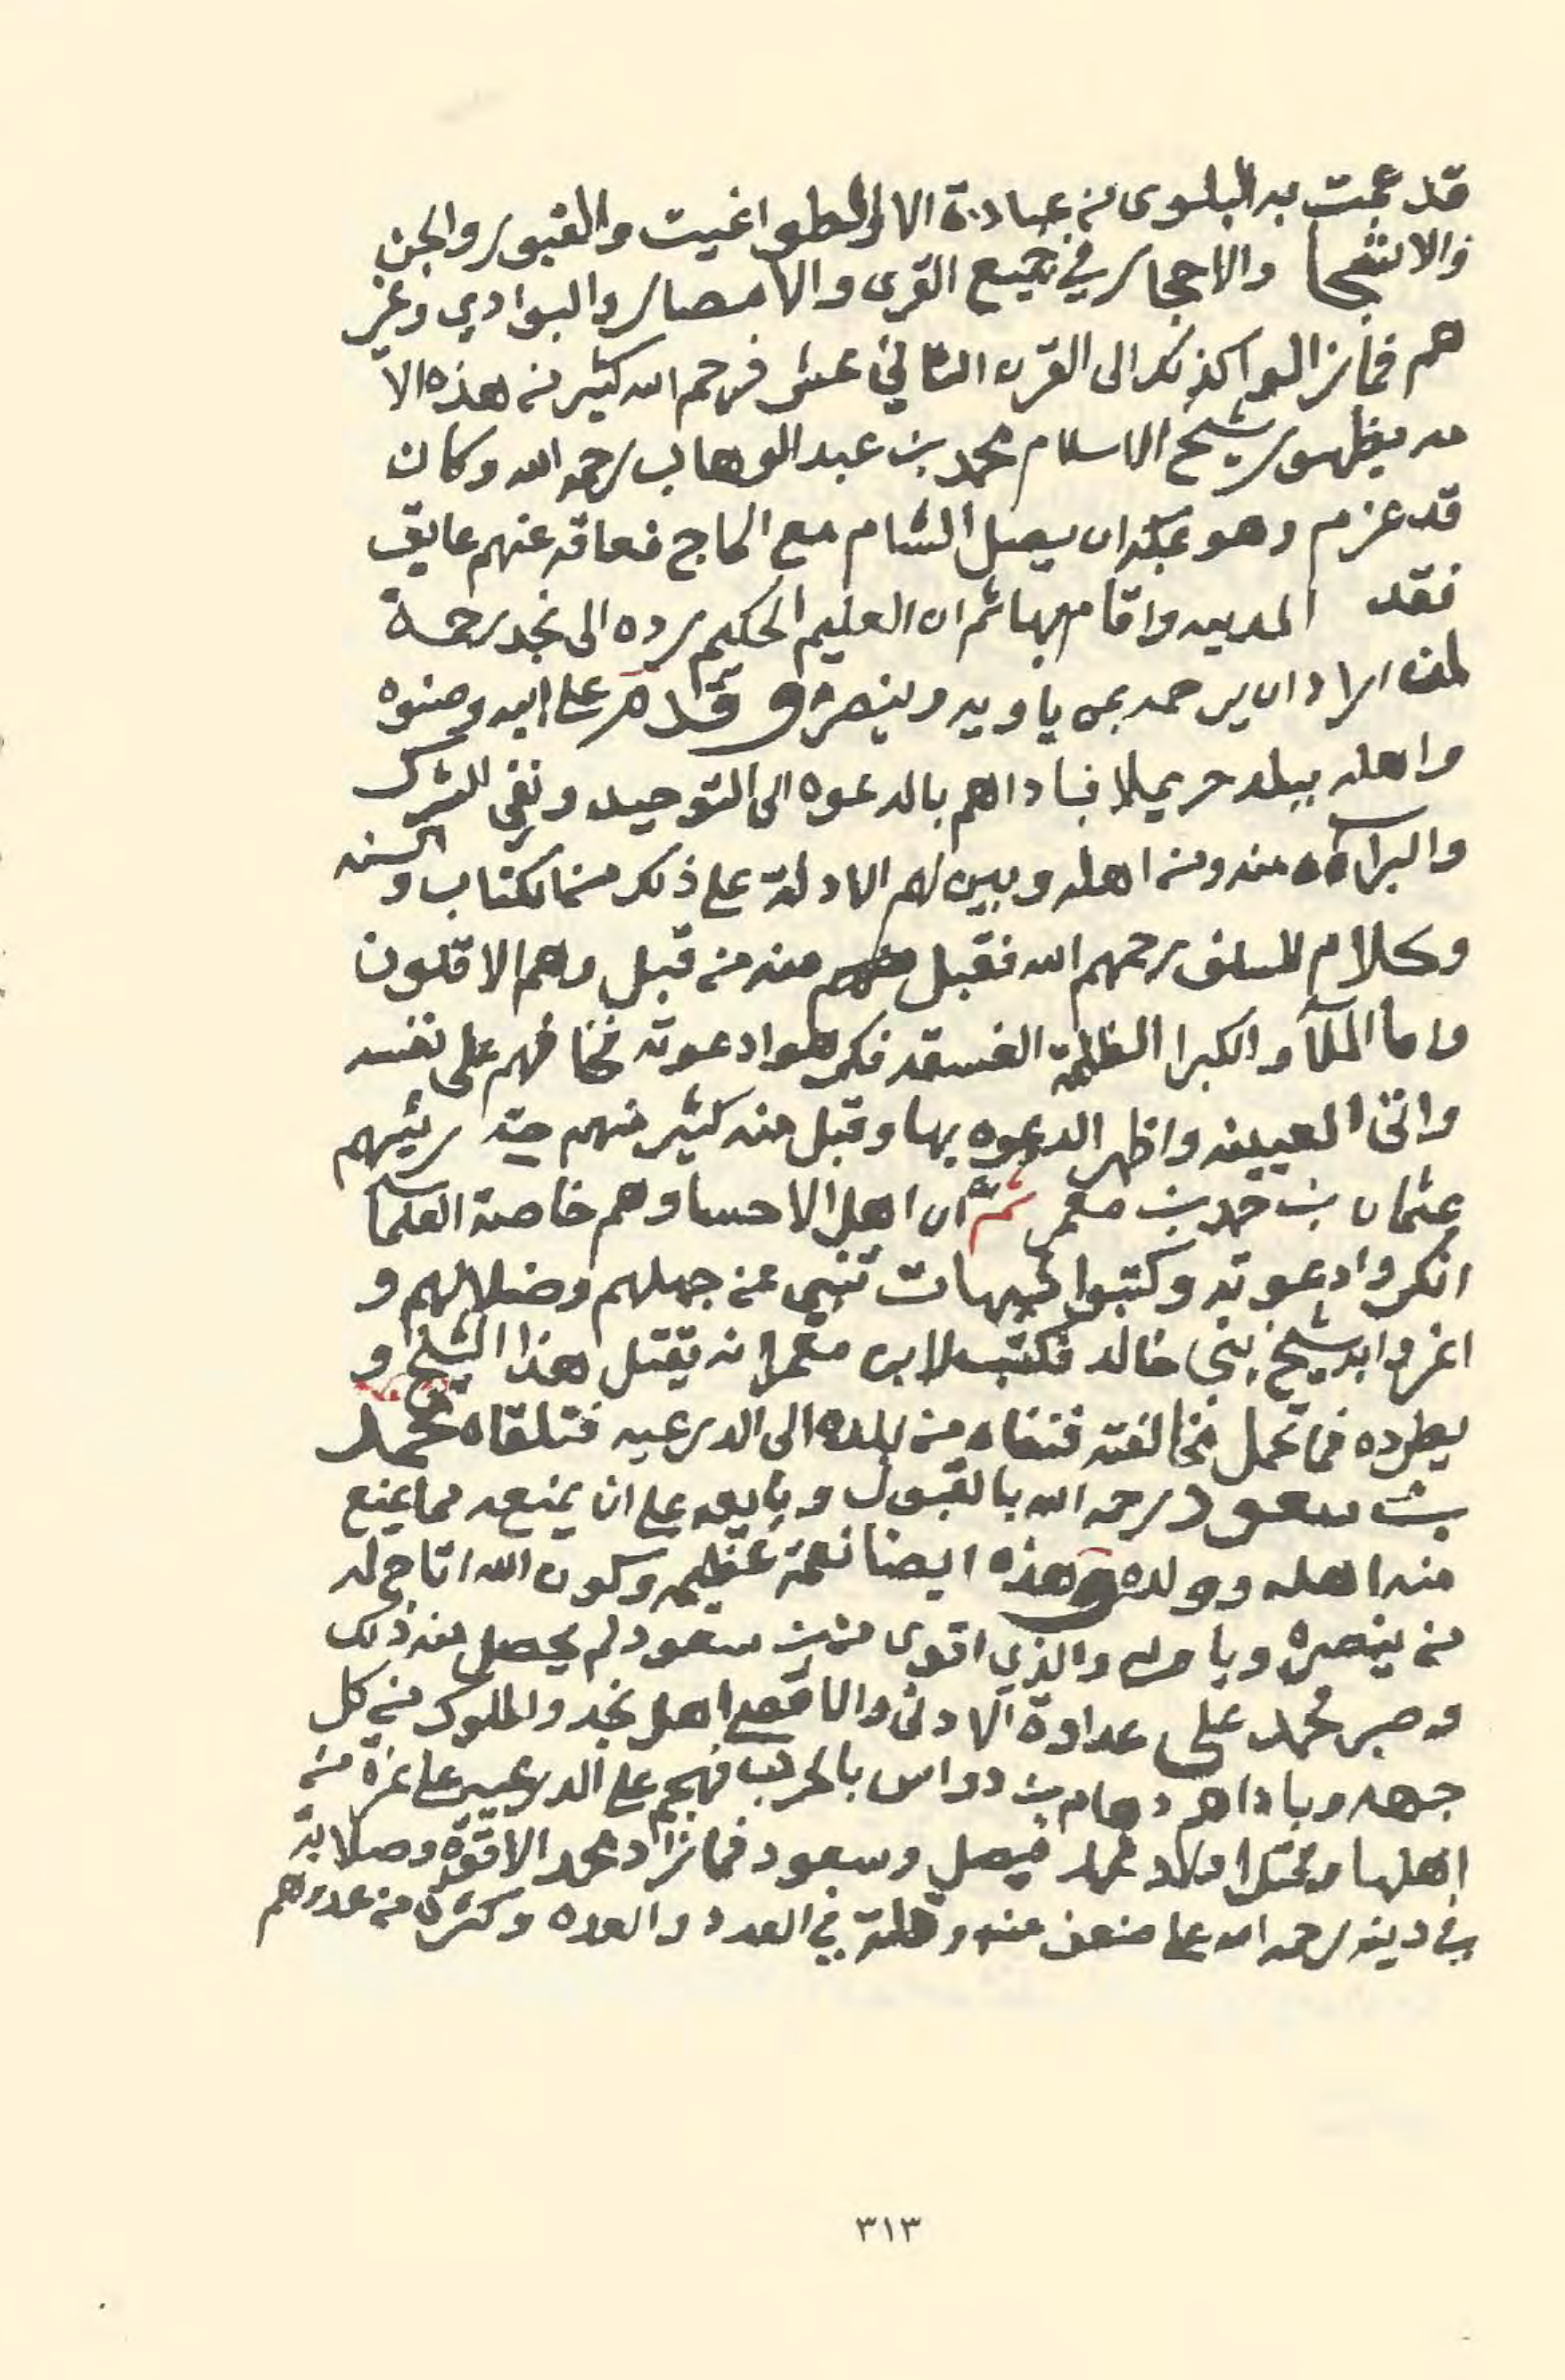 قد عمت به البلوى من عبادة الا والطواغيت والقبور والجن
والاشجا والاحجار في جميع القرى والامصار والبوادي وغير
هم فمازالوا كذلك الى القرن الثاني عشر فرحم الله كثير من هذه الا
مه بظهور شيخ الاسلام محمد بن عبد الوهاب رحمه الله وكان
قد عزم وهو بمكة ان يصل الشام مع الحاج فعاقه عنهم عايق
فقد المدينه واقام بها ثم ان العليم الحكيم رده الى نجد رحمة
لمن اراد ان يرحمه بمن ياويه وينصره وقدم على ابيه وصنوه
واهله ببلد حريملا فباداهم بالدعوه الى التوحيد ونفي الشرك
والبراءه منه ومن اهله وبين لهم الادلة على ذلك من الكتاب والسنه
وكلام السلف رحمهم الله فقبل منه من قبل وهم الاقلون
واما الملأ والكبرا الظلمة الفسقه فكرهوا دعوته فخافهم على نفسه
واتى العيينه واظهر الدعوه بها وقبل منه كثير منهم حتى رئيسهم
عثمان بن حمد بن معمر ثم ان اهل الاحسا وهم خاصة العلما
انكروا دعوته وكتبوا شبهات تنبي عن جهلهم وضلالهم و
اغروا به شيخ بني خالد فكتب لابن معمر ان يقتل هذا الشيخ و
يطرده فما تحمل مخالفته فنفاه من بلده الى الدرعيه فتلقاه محمد
بن سعود رحمه الله بالقبول وبايعه على ان يمنعه مما يمنع
منه اهله وولده وهذه ايضا نعمة عظيمه وكون الله اتاح له
من ينصره وياويه والذي اقوى من بن سعود لم يحصل منه ذلك
وصبر محمد على عداوة الادنى والاقصى اهل نجد والملوك من كل
جهه وباداهم دهام بن دواس بالحرب فهجم على الدرعيه على غرة من
اهلها وقتل اولاد محمد فيصل وسعود فما زاد محمد الا قوة وصلابة
في دينه رحمه الله على ضعف منه وقلة في العدد والعده وكثرة من عدوهم
٣١٣